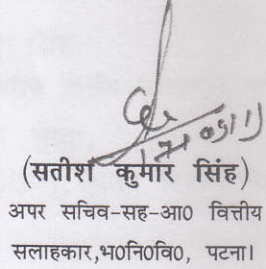 (सतीश कुमार सिंह)
अपर सचिव-सह-आ0 वित्तीय
सलाहकार,भ0नि0वि0, पटना।